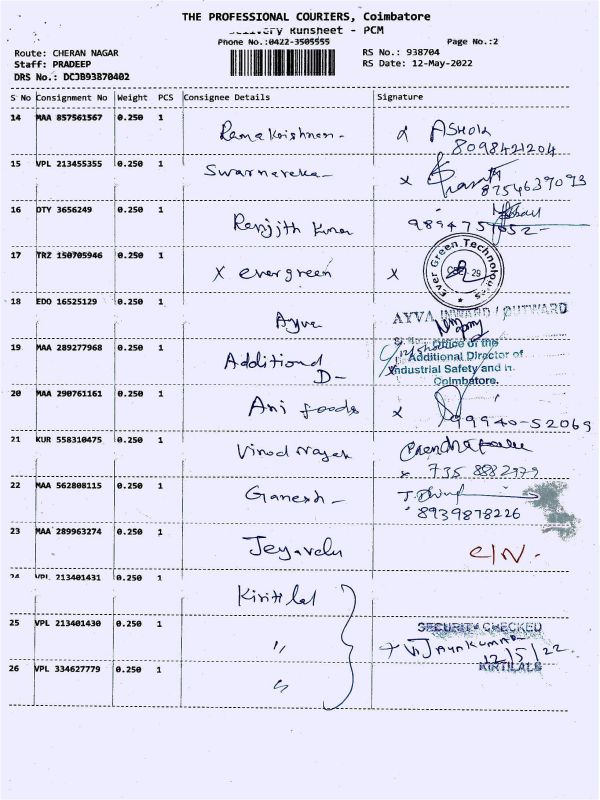 THE PROFESSIONAL COURIERS, Coimbatore
Delivery Runsheet - PCM
Phone No.:0422-3505555
Page No.:2
Route: CHERAN NAGAR
RS No.: 938704
Staff: PRADEEP
RS Date: 12-May-2022
DRS No.: DCJB93870402
S No Consignment No Weight PCS Consignee Details Signature
14 MAA 857561567 0.250 1 Ramakrishnan- ASHOK
8098421204
15 VPL 213455355 0.250 1 Swarnareka- x
8754639093
16 DTY 3656249 0.250 1 Ranjith Kumar
17 TRZ 150705946 0.250 1 x evergreen x
Ever Green Technologies
18 EDO 16525129 0.250 1 Ayva AYVA INWARD / OUTWARD
19 MAA 289277968 0.250 1 Additional D- Office of the
Additional Director of
Industrial Safety and H.
Coimbatore.
20 MAA 290761161 0.250 1 Ani foods x
99940-52069
21 KUR 558310475 0.250 1 Vinod nayak
x 735 8882979
22 MAA 562808115 0.250 1 Ganesh-
8939878226
23 MAA 289963274 0.250 1 Jeyavelu C/N.
24 VPL 213401431 0.250 1 Kirtilal
25 VPL 213401430 0.250 1 " SECURITY CHECKED
VIJAYAKUMAR
12/5/22
KIRTILALS
26 VPL 334627779 0.250 1 "